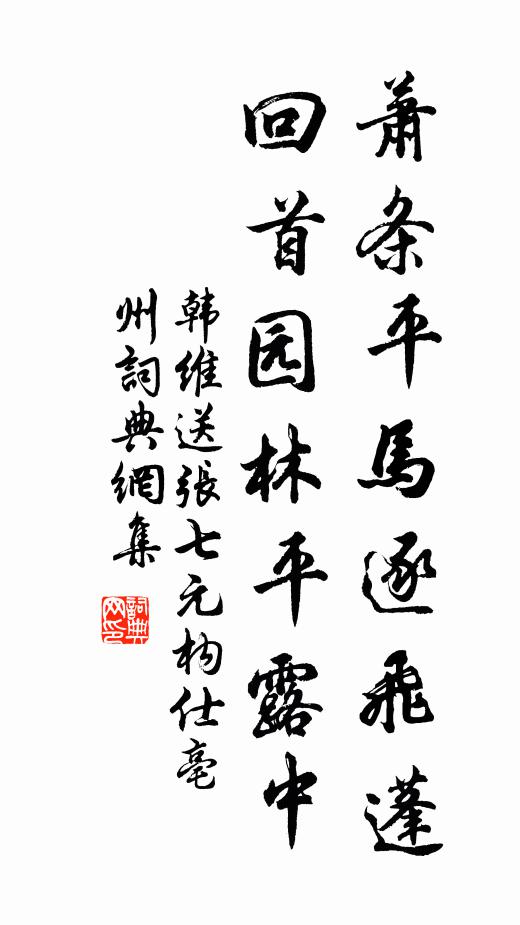 蕭条平馬逐飛蓬
回首园林平露中
韩維送張七元构仕亳
州詞典網集
詞典
网印